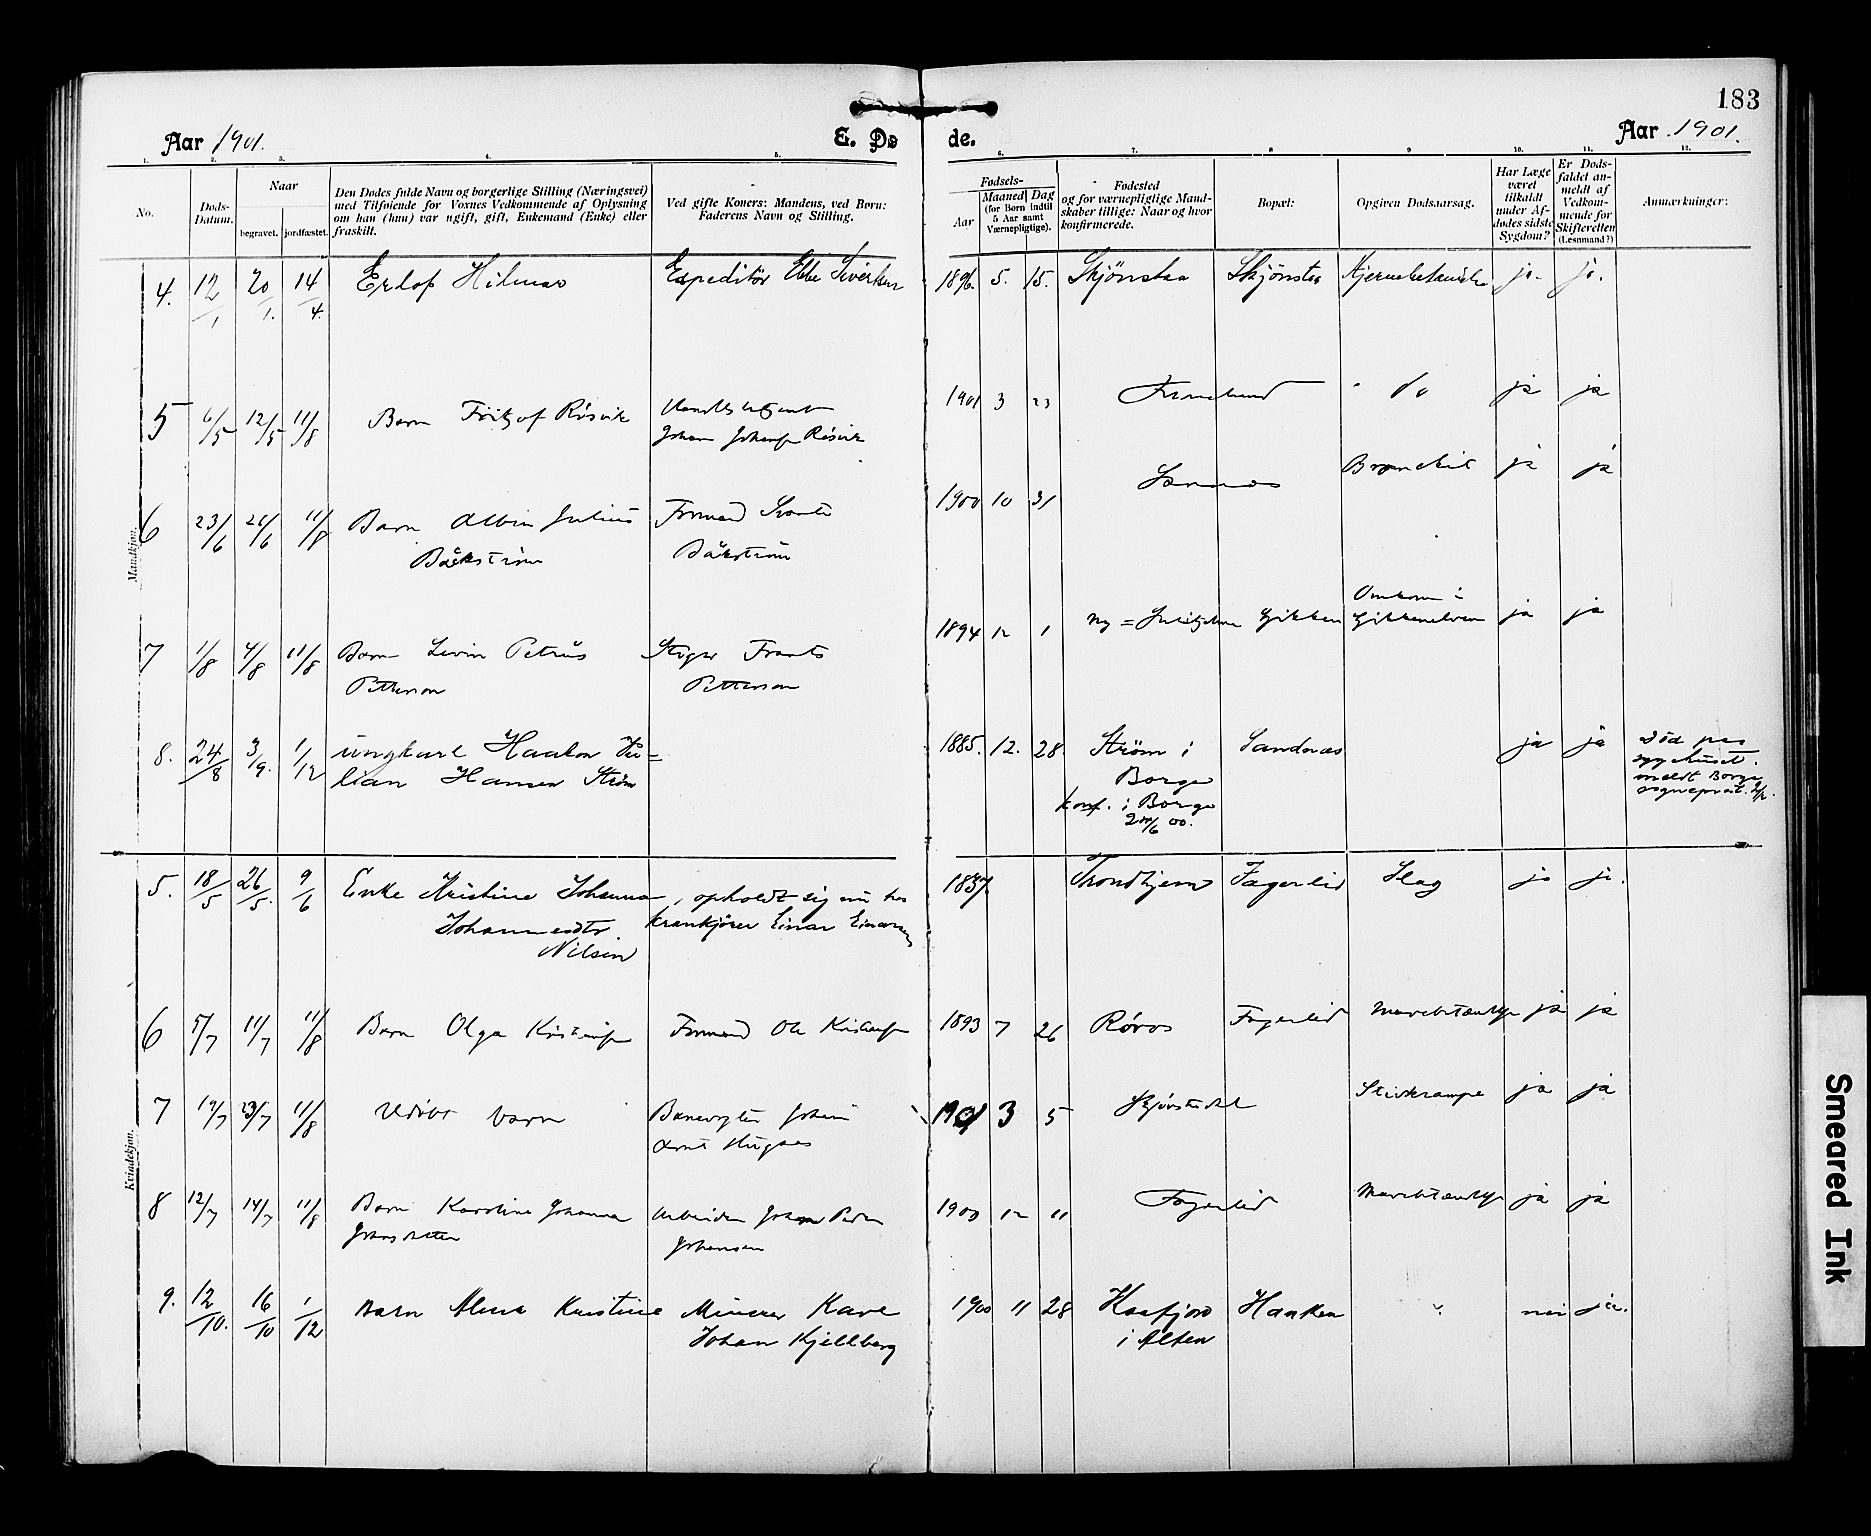 183
Aar 1901.
E. Dø de.
Aar 1901.
1. 2. 3. 4. 5. 6. 7. 8 9 10. 11. 12.
No.
Døds-Datum.
Naar
begravet. jordfæstet.
Den Dødes fulde Navn og borgerlige Stilling (Næringsvei)
med Tilføiende for Voxnes Vedkommende af Oplysning
om han (hun) var ugift, gift, Enkemand (Enke) eller
fraskilt.
Ved gifte Koners: Mandens, ved Børn:
Faderens Navn og Stilling.
Fødsels-
Aar
Maaned Dag
(for Børn indtil
5 Aar samt
Værnepligtige).
Fødested
og for værnepligtige Mand-
skaber tillige: Naar og hvor
konfirmerede.
Bopæl:
Opgiven Dødsaarsag.
Har Læge
været
tilkaldt
under Af-
dødes sidste
Sygdom?
Er Døds-
faldet an-
meldt af
Vedkom-
mende for
Skifteretten
(Lesnmand?)
Anmærkninger:
Mandkjøn.
4. 12/1 20/1. 14/4. Erlof Hilmar Expeditør Ebbe Siverten 1896. 5. 15. Skjönstaa Skjönstaa ja. ja.
5 6/5 12/5 11/8 Barn Fritjof Rösvik
Johan Johansen Rösvik 1901 3 23 do ja ja
6 23/6 26/6 11/8 Barn Albin Julius Formand
Bäckström Bäckström 1900 10 31 Bronchit ja ja
7 1/8 4/8 11/8 Barn Levin Petrus Stiger Frants
Petterson Petterson 1894 12 1 Ny = Sulitjelma Gikken Omkom i
Gikkenelven ja ja
8. 24/8 3/9. 1/12 ungkarl Haakon Ju=
lian Hansen Ström 1885. 12. 28 Ström i
Borge
konf. i Borge
Sandnæs ja ja Död paa
sygehuset.
meldt Borge
sogneprest.
Kvindekjøn.
5. 18/5 26/5. 9/6 Enke Kristine Johanna, opholdt sig nu hos
Johannesdtr krankjører Einar Einarsen
Nilsen 1837. Trondhjem Fagerlid Slag ja ja.
6 5/7 11/7 11/8 Barn Olga Kristiansen Formand Ole Kristiansen 1893 7 26 Røros Fagerlid ja ja
7 19/7 23/7 11/8 Udøbt barn Banevogter Johan
1901 3 5 Stivkrampe ja ja
8 12/7 14/7 11/8 Barn Karoline Johanna Arbeider Johan Peder
Johansen 1900 12 11 Fagerlid ja ja
9. 12/10. 16/10 1/12 Barn Alma Kristine Minerer Kare
Johan Kjellberg 1900 11 28 Kaafjord
i Alten Hanken " nei ja.
Smeared Ink